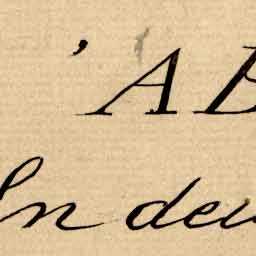 'AB
In deu